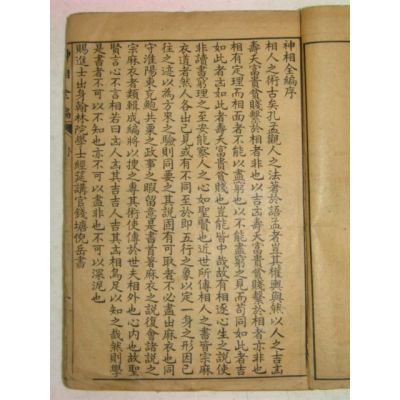 神相全編序
相人之術古矣孔孟觀人之法著於語孟者豈其權輿與然以人之吉凶
壽夭富貴貧賤繫於相者非也以吉凶壽夭富貴貧賤繫於相者亦非也
相有定理而相面者不能以盡窮也以不能盡窮之見而苟同如此者吉
如此者凶如此者壽夭富貴貧賤也豈能皆中哉故有相逐心生之說使
非讀書窮理之至安能察人之心如聖賢也近世所傳相人之書皆宗麻
衣道者然人各出己見或有不同至於即五行之象以定一身之形因已
往之迹以為方來之驗則同要之其說固有可取者不必盡出麻衣也同
守淮陽東京鮑共粟之政事之暇留意是書首著麻衣之說復會諸說之
宗麻衣者類輯成編將以搜之專其術使傳於世夫相外也心內也故聖
賢言心不言相若曰吉人吉其吉凶人吉其凶相烏足以知之哉然則學
是書者不可以不知也亦不可以盡非也不可以深泥也
賜進士出身翰林院學士經筵講官錢塘倪岳書
神相全編
序